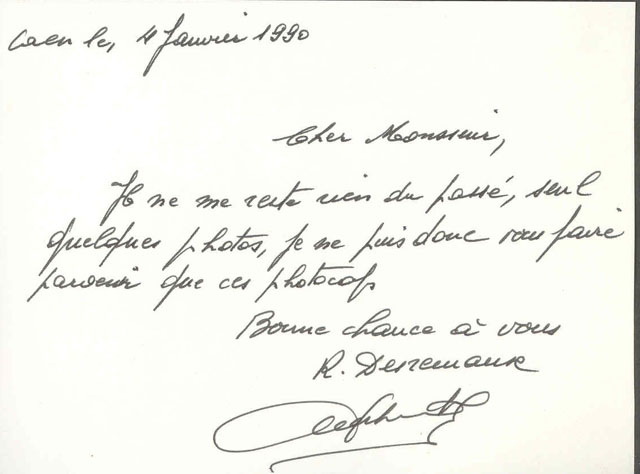 Caen le, 4 Janvier 1990
Cher Monsieur,
Il ne me reste rien du passé, seul
quelques photos, je ne puis donc vous faire
parvenir que ces photocop
Bonne chance à vous
R.